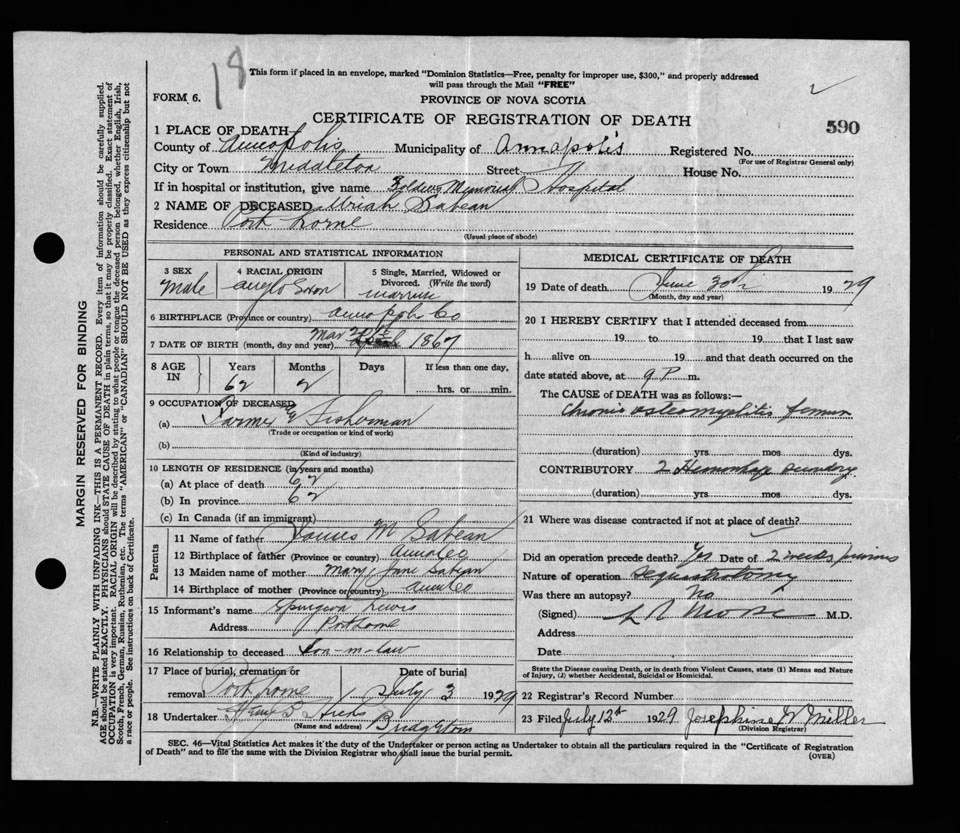 18
This form if placed in an envelope, marked "Dominion Statistics—Free, penalty for improper use, $300," and properly addressed
will pass through the Mail "FREE"
FORM 6.
PROVINCE OF NOVA SCOTIA
CERTIFICATE OF REGISTRATION OF DEATH
590
1 PLACE OF DEATH—
County of Annapolis Municipality of Annapolis Registered No.
(For use of Registrar General only)
City or Town Middleton Street House No.
If in hospital or institution, give name Soldiers Memorial Hospital
2 NAME OF DECEASED Uriah Sabean
Residence Port Lorne
(Usual place of abode)
PERSONAL AND STATISTICAL INFORMATION
3 SEX 4 RACIAL ORIGIN 5 Single, Married, Widowed or
Divorced. (Write the word)
Male Anglo Saxon Married
6 BIRTHPLACE (Province or country) Annapolis Co
7 DATE OF BIRTH (month, day and year) Mar 1867
8 AGE IN Years Months Days If less than one day,
62 2 hrs. or min.
9 OCCUPATION OF DECEASED
(a) Farmer Fisherman
(Trade or occupation or kind of work)
(b)
(Kind of industry)
10 LENGTH OF RESIDENCE (in years and months)
(a) At place of death 62
(b) In province 62
(c) In Canada (if an immigrant)
Parents
11 Name of father M Sabean
12 Birthplace of father (Province or country) Anna Co
13 Maiden name of mother Mary Jane Sabean
14 Birthplace of mother (Province or country) Anna Co
15 Informant's name Spurgeon Lewis
Address Port Lorne
16 Relationship to deceased Son-in-law
17 Place of burial, cremation or Date of burial
removal Port Lorne July 3 1929
18 Undertaker
(Name and address) Bridgetown
MEDICAL CERTIFICATE OF DEATH
19 Date of death June 30th 1929
(Month, day and year)
20 I HEREBY CERTIFY that I attended deceased from
19 to 19 that I last saw
h alive on 19 and that death occurred on
date stated above, at 9 P m.
The CAUSE of DEATH was as follows:—
Chronic osteomyelitis femur
(duration) yrs mos dys.
CONTRIBUTORY 2 Hemorrhage secondary
(duration) yrs mos dys.
21 Where was disease contracted if not at place of death?
Did an operation precede death? Yes Date of 2 weeks previous
Nature of operation Sequestrotomy
Was there an autopsy? No
(Signed) L R Morse M.D.
Address
Date
State the Disease causing Death, or in death from Violent Causes, state (1) Means and Nature
of Injury, (2) whether Accidental, Suicidal or Homicidal.
22 Registrar's Record Number
23 Filed July 12th 1929 Josephine W Miller
(Division Registrar)
SEC. 46—Vital Statistics Act makes it the duty of the Undertaker or person acting as Undertaker to obtain all the particulars required in the "Certificate of Registration
of Death" and to file the same with the Division Registrar who shall issue the burial permit.
(OVER)
MARGIN RESERVED FOR BINDING
N.B.—WRITE PLAINLY WITH UNFADING INK—THIS IS A PERMANENT RECORD. Every item of information should be carefully supplied.
AGE should be stated EXACTLY. PHYSICIANS should STATE CAUSE OF DEATH in plain terms, so that it may be properly classified. Exact statement of
OCCUPATION is very important. RACIAL ORIGIN will be described by stating to what people or tongue the deceased person belonged, whether English, Irish,
Scotch, French, German, Russian, Ruthenian, etc. The terms "AMERICAN" or "CANADIAN" SHOULD NOT BE USED as they express citizenship but not
a race or people. See instructions on back of Certificate.